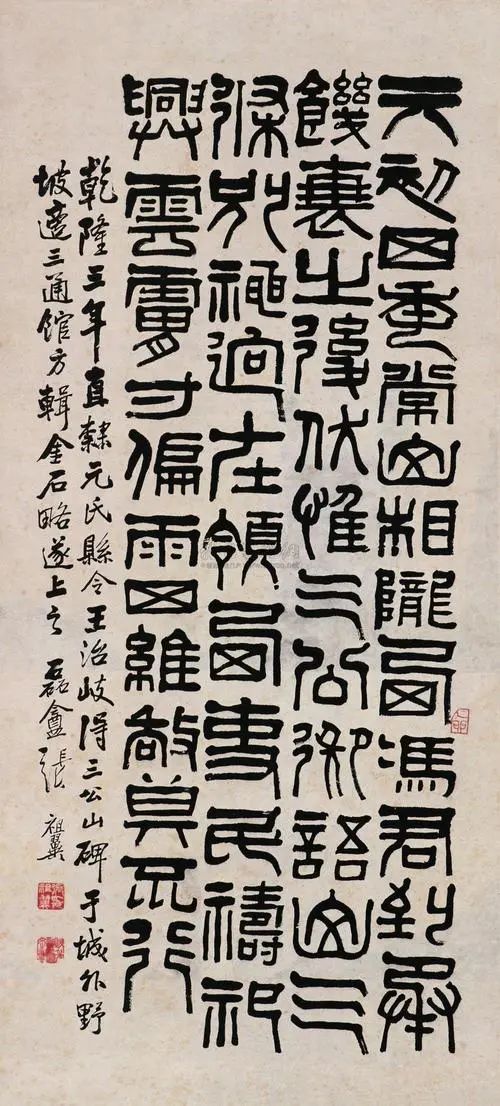 元初四年常山相隴西馮君到承
饑衰之後伏惟三公御語山三
條別神迥在領西吏民禱祀
興雲膚寸偏雨四維敬奠不行
乾隆三年直隸元氏縣令王治岐得三公山碑于城外野
坡邊三通館方輯金石略遂上之 磊盦張祖翼